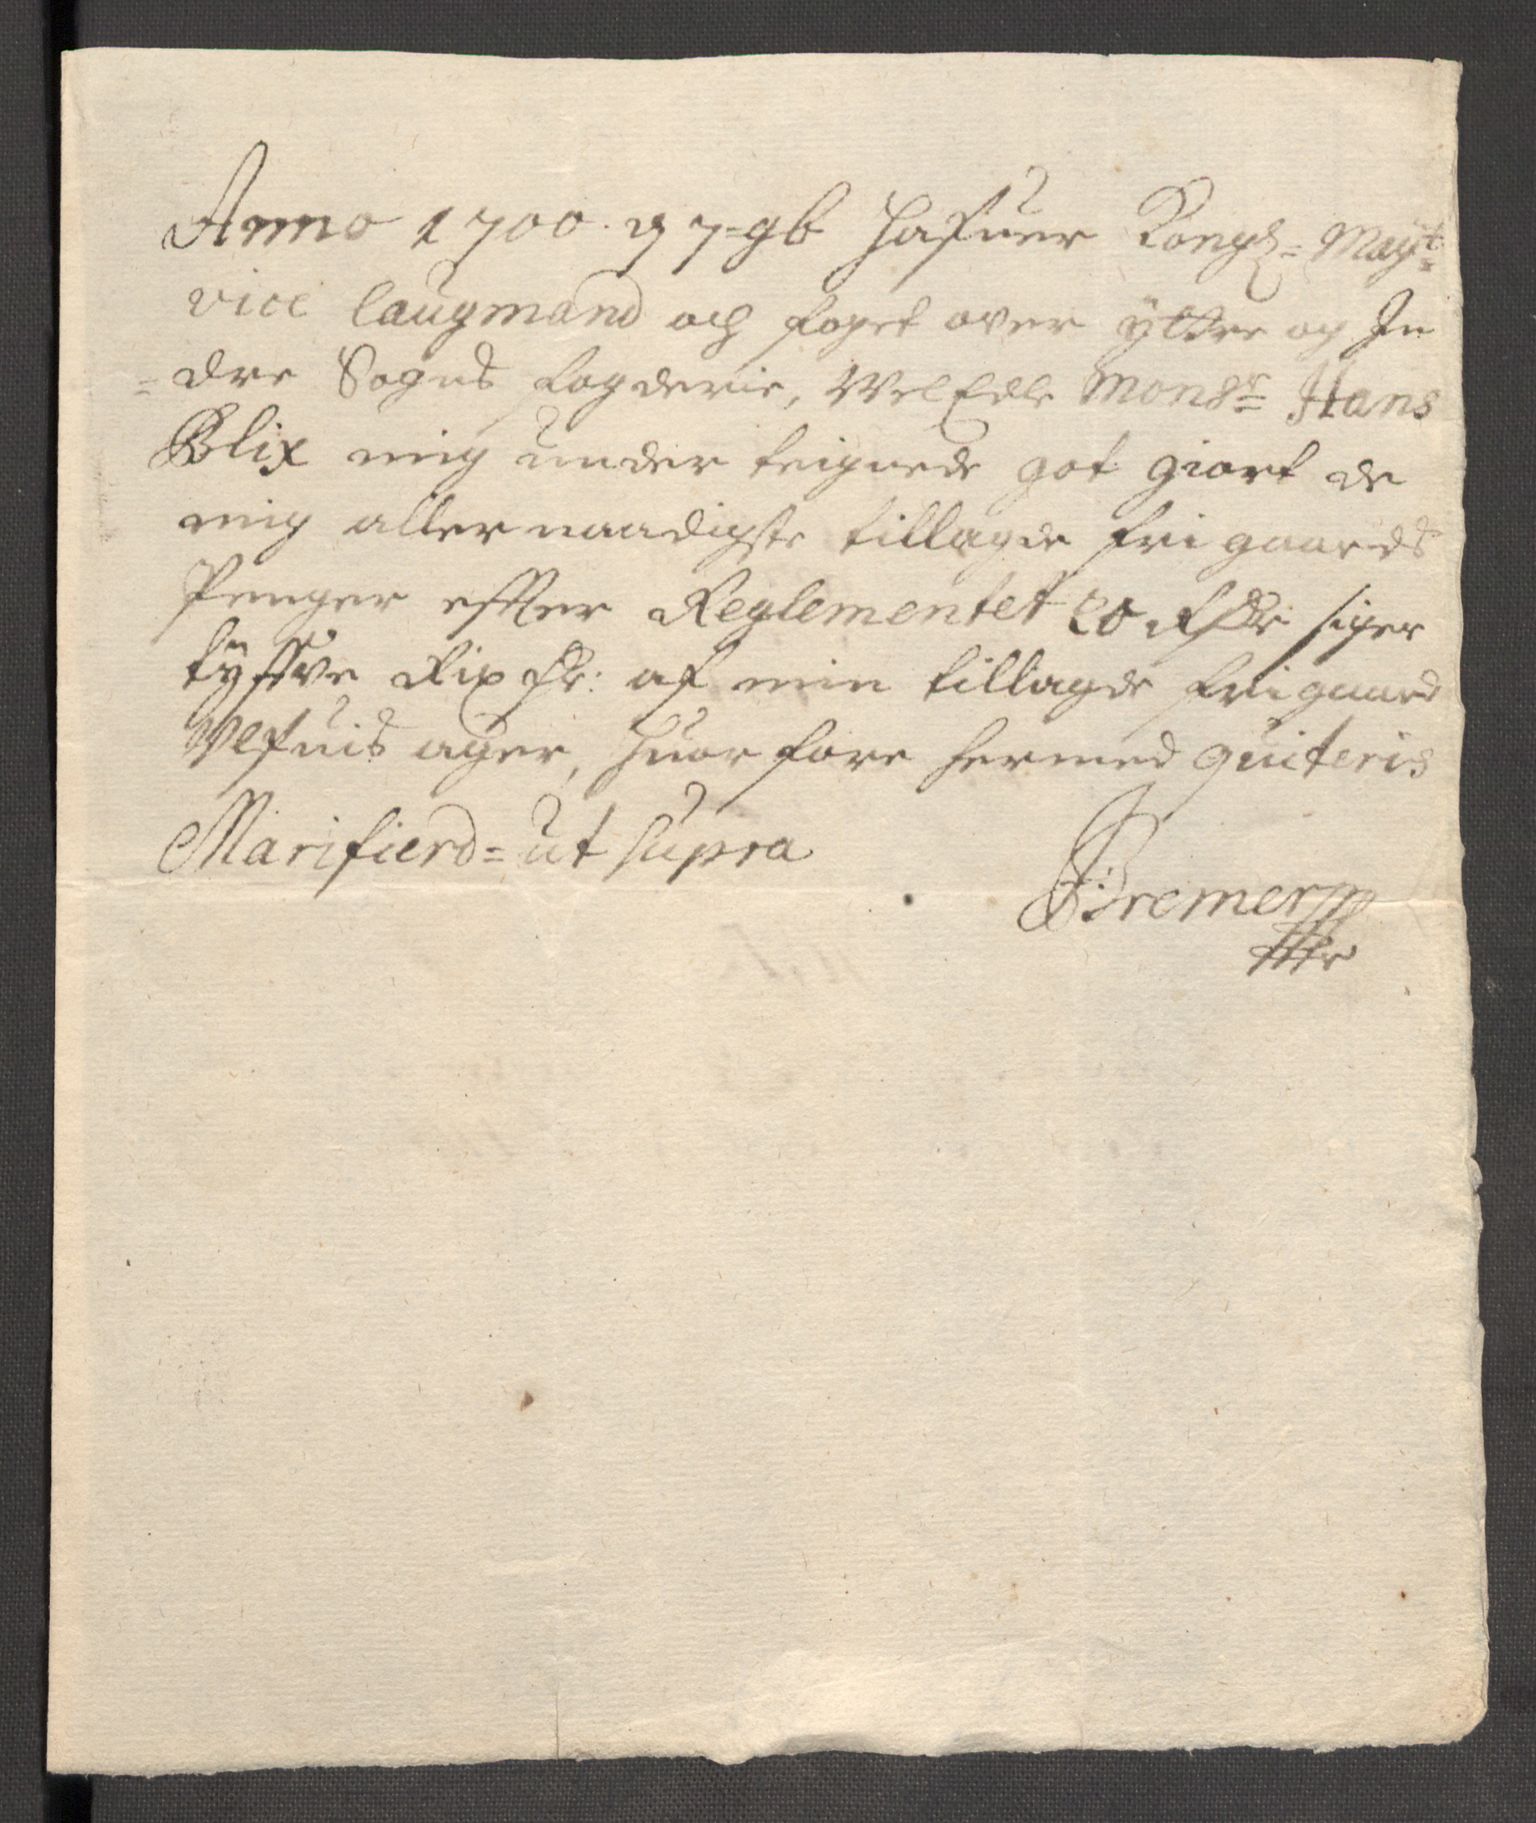 Anno 1700. d 7-9b hafuer Kongl= May:t
vice Laugmand och foget over ÿttre og In
=dre Sogns fogderie, WelEdle Monsr= Hans
Blix mig under teignede got giort de
mig aller naadigste tillagde fri gaards
Penger effter Reglementet 20 Rdr siger
tÿffve Rix dr: af min tillagde fri gaard
ager, huor fore hermed quiteris
Marifierd= ut supra
Bremer